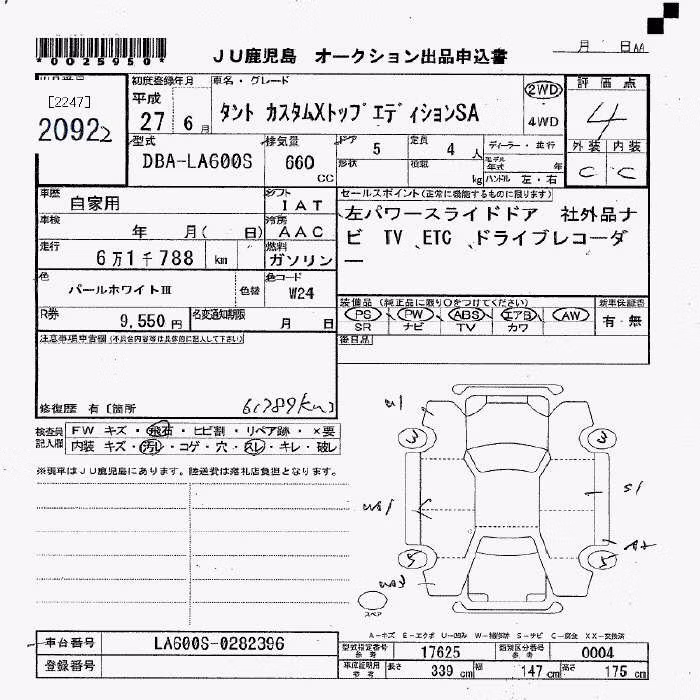 *0025950*
JU鹿児島 オークション出品申込書
月 日 AA
[2247]
20922
初度登録年月
平成
27 6 月
車名・グレード
タント カスタムXトップエディションSA
2WD
4WD
評価点
4
外装 内装
C C
型式
DBA-LA600S
排気量
660
CC
ドア 5
定員 4 人
形状
積載 kg
ディーラー・並行
モデル年式 年
ハンドル 左・右
車歴
自家用
シフト
IAT
車検
年 月( 日)
冷房
AAC
走行
6万1千788 km
燃料
ガソリン
セールスポイント(正常に機能するものに限ります)
左パワースライドドア 社外品ナ
ビ TV、ETC、ドライブレコーダ
ー
色
パールホワイトⅢ
色替
色コード
W24
R券
9,550 円
名変通知期限
月 日
装備品(純正品に限り○をつけてください)
PS PW ABS エアB AW
SR ナビ TV カワ
新車保証書
有・無
後日品
注意事項申告欄(不具合内容等は具体的に記入して下さい)
修復歴 有〔箇所
61789km
検査員
記入欄
FW キズ・飛石・ヒビ割・リペア跡・×要
内装 キズ・汚レ・コゲ・穴・スレ・キレ・破レ
※現車はJU鹿児島にあります。陸送費は落札店負担となります。
3 3
S1
5 5
スペア
A-キズ E-エクボ U-凹み W-補修跡 S-サビ C-腐食 XX-交換済
車台番号 LA600S-0282396
登録番号
型式指定番号 参考 17625
類別区分番号 参考 0004
車庫証明用 参考 長さ 339 cm 幅 147 cm 高さ 175 cm